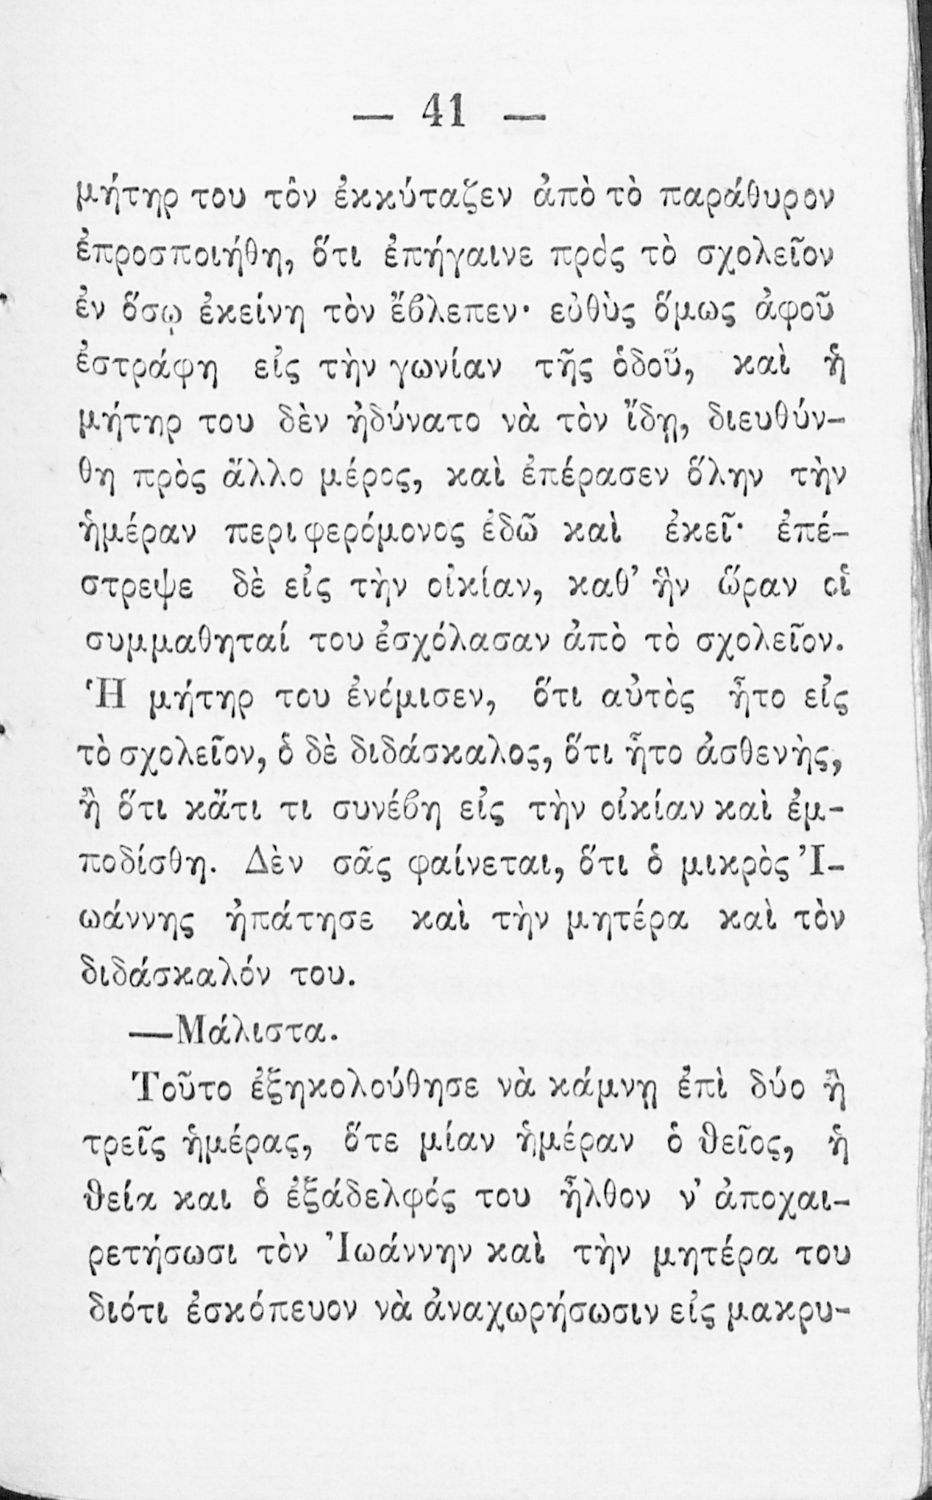 — 41 —
μήτηρ του τὸν ἐκκύταζεν ἀπὸ τὸ παράθυρον
ἐπροσποιήθη, ὅτι ἐπήγαινε πρὸς τὸ σχολεῖον
ἐν ὅσῳ ἐκείνη τὸν ἔβλεπεν· εὐθὺς ὅμως ἀφοῦ
ἐστράφη εἰς τὴν γωνίαν τῆς ὁδοῦ, καὶ ἡ
μήτηρ του δὲν ἠδύνατο νὰ τὸν ἴδῃ, διευθύν-
θη πρὸς ἄλλο μέρος, καὶ ἐπέρασεν ὅλην τὴν
ἡμέραν περιφερόμονος ἐδῶ καὶ ἐκεῖ· ἐπέ-
στρεψε δὲ εἰς τὴν οἰκίαν, καθ’ ἣν ὥραν οἱ
συμμαθηταί του ἐσχόλασαν ἀπὸ τὸ σχολεῖον.
Ἡ μήτηρ του ἐνόμισεν, ὅτι αὐτὸς ἦτο εἰς
τὸ σχολεῖον, ὁ δὲ διδάσκαλος, ὅτι ἦτο ἀσθενὴς,
ἢ ὅτι κἄτι τι συνέβη εἰς τὴν οἰκίαν καὶ ἐμ-
ποδίσθη. Δὲν σᾶς φαίνεται, ὅτι ὁ μικρὸς Ἰ-
ωάννης ἠπάτησε καὶ τὴν μητέρα καὶ τὸν
διδάσκαλόν του.
—Μάλιστα.
Τοῦτο ἐξηκολούθησε νὰ κάμνῃ ἐπὶ δύο ἢ
τρεῖς ἡμέρας, ὅτε μίαν ἡμέραν ὁ θεῖος, ἡ
θεία και ὁ ἐξάδελφός του ἦλθον ν’ ἀποχαι-
ρετήσωσι τὸν Ἰωάννην καὶ τὴν μητέρα του
διότι ἐσκόπευον νὰ ἀναχωρήσωσιν εἰς μακρυ-